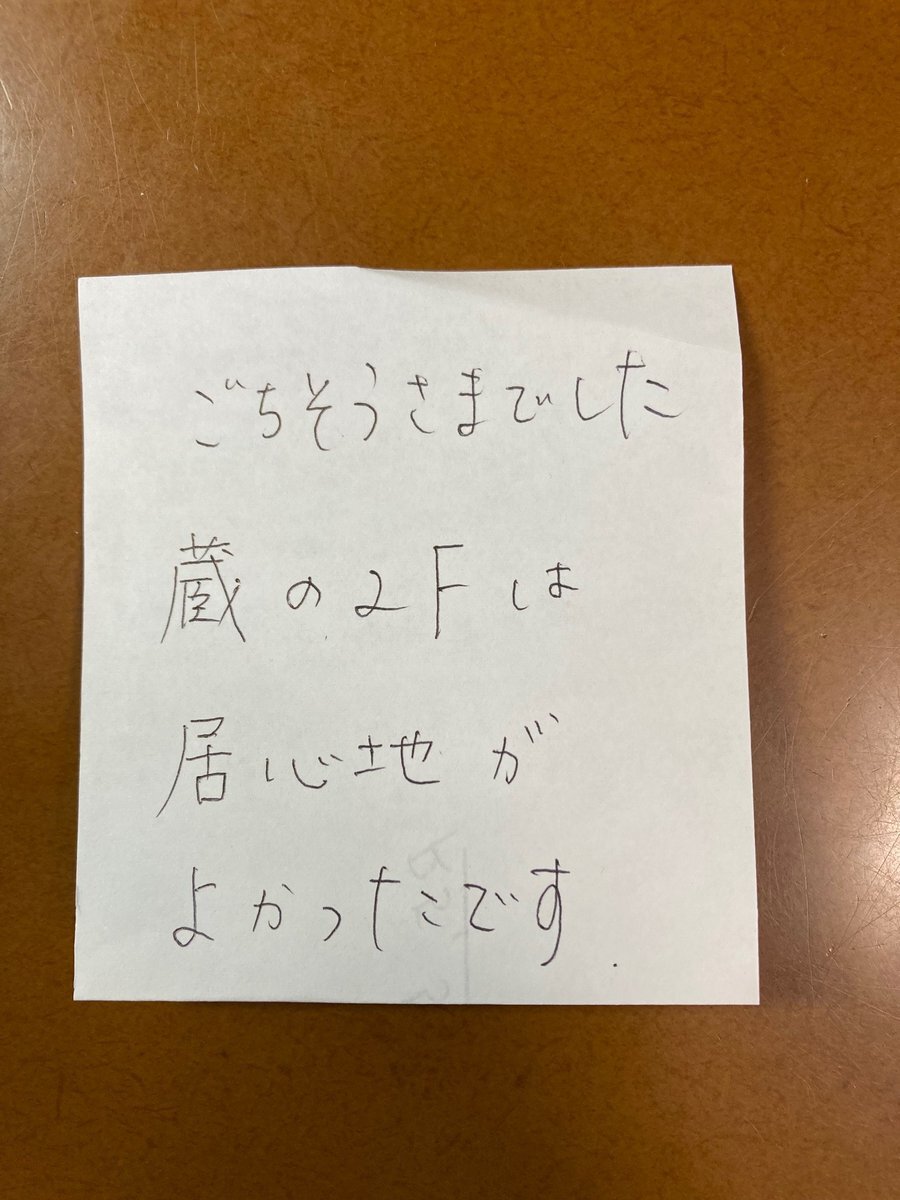 ごちそうさまでした
蔵の2Fは
居心地が
よかったです.